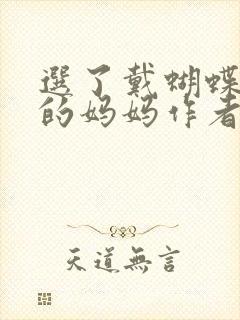 選了戴蝴蝶
的妈妈作者
天道無言